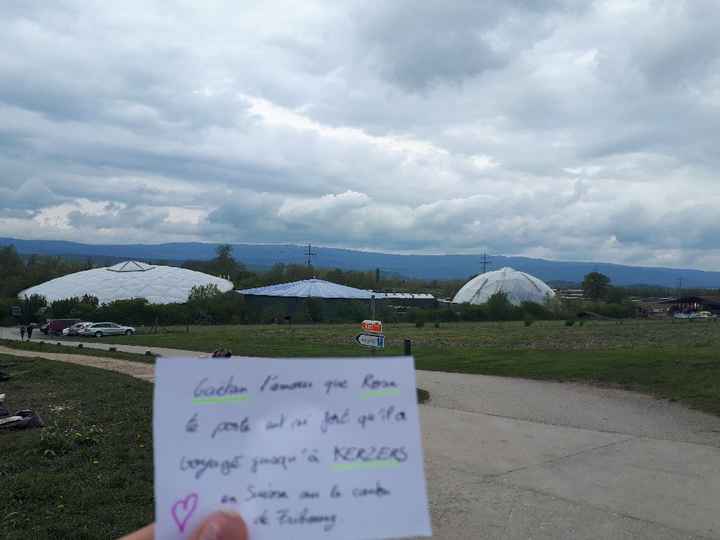 Gaëtan l'amour que Rosan
te porte est si fort qu'il a
voyagé jusqu'à KERZERS
en Suisse dans le canton
de Fribourg.